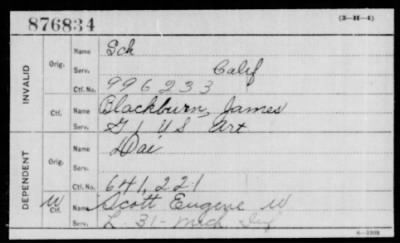 876834 (3-H-4)
INVALID
Orig. Name Sch
Serv. Calif
Ctf. No. 996233
Ctf. Name Blackburn, James
Serv. G 1 US Art
DEPENDENT
Orig. Name Dai
Serv.
Ctf. No. 641,221
W Ctf. Name Scott Eugene W
Serv. L 31 - Mich Inf
6-2308